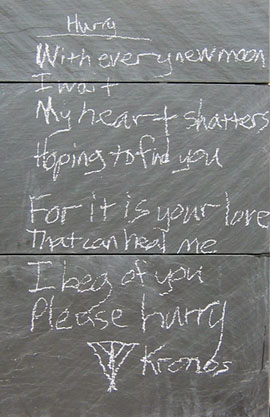 Hurry
With every new moon
I wait
My heart shatters
Hoping to find you
For it is your love
That can heal me
I beg of you
Please hurry
Kronos